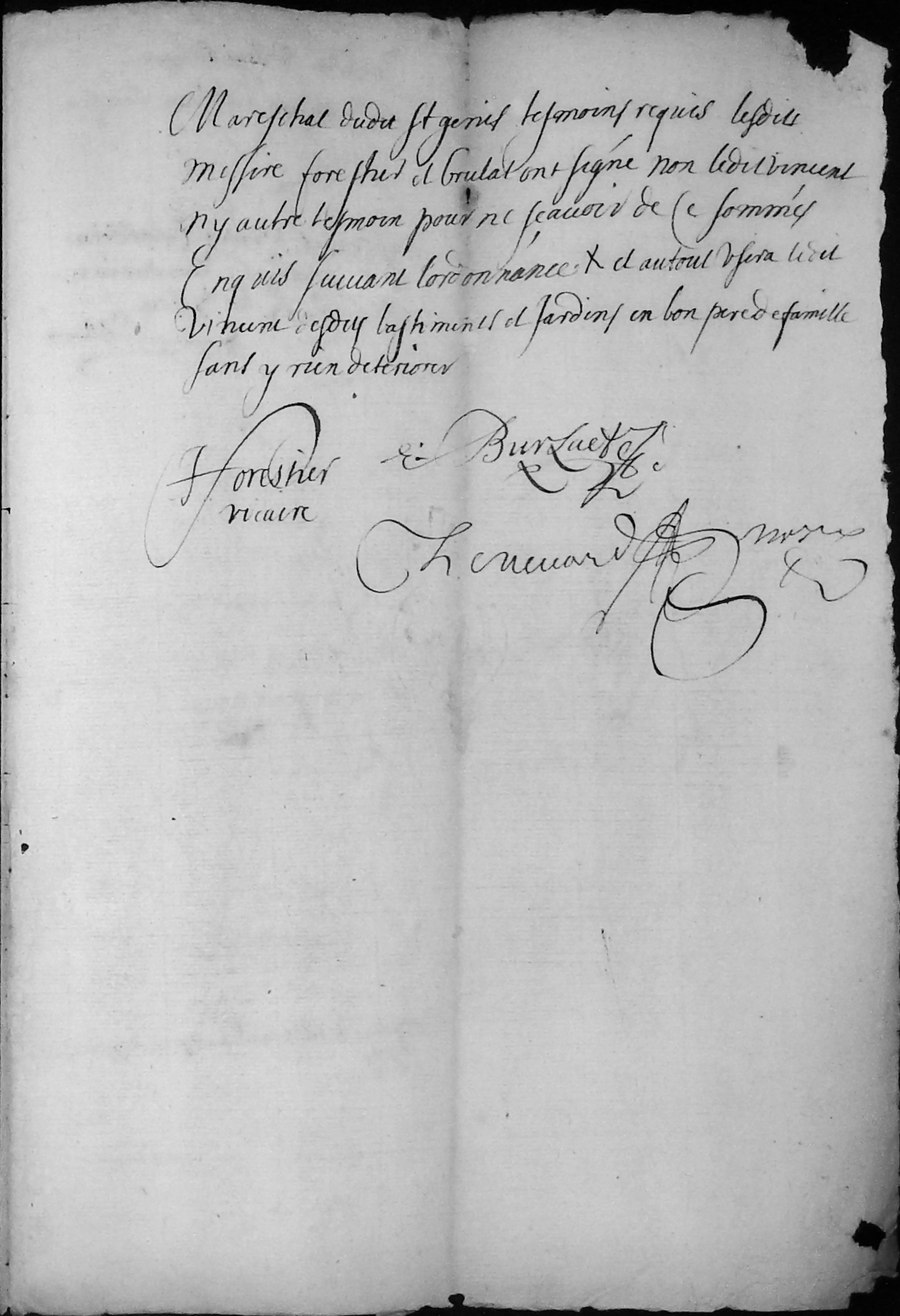 Mareschal dudit st genis tesmoins requis lesdits
messire forestier et brulat ont signé non ledit vincent
ny autre tesmoin pour ne sçauoir de ce sommés
Enquis suiuant lordonnance X et autout Usera ledit
Vincent desdits bastiments et Jardins en bon pere de famille
sans y rien deteriorer
Forestier
vicaire
Cheneuard